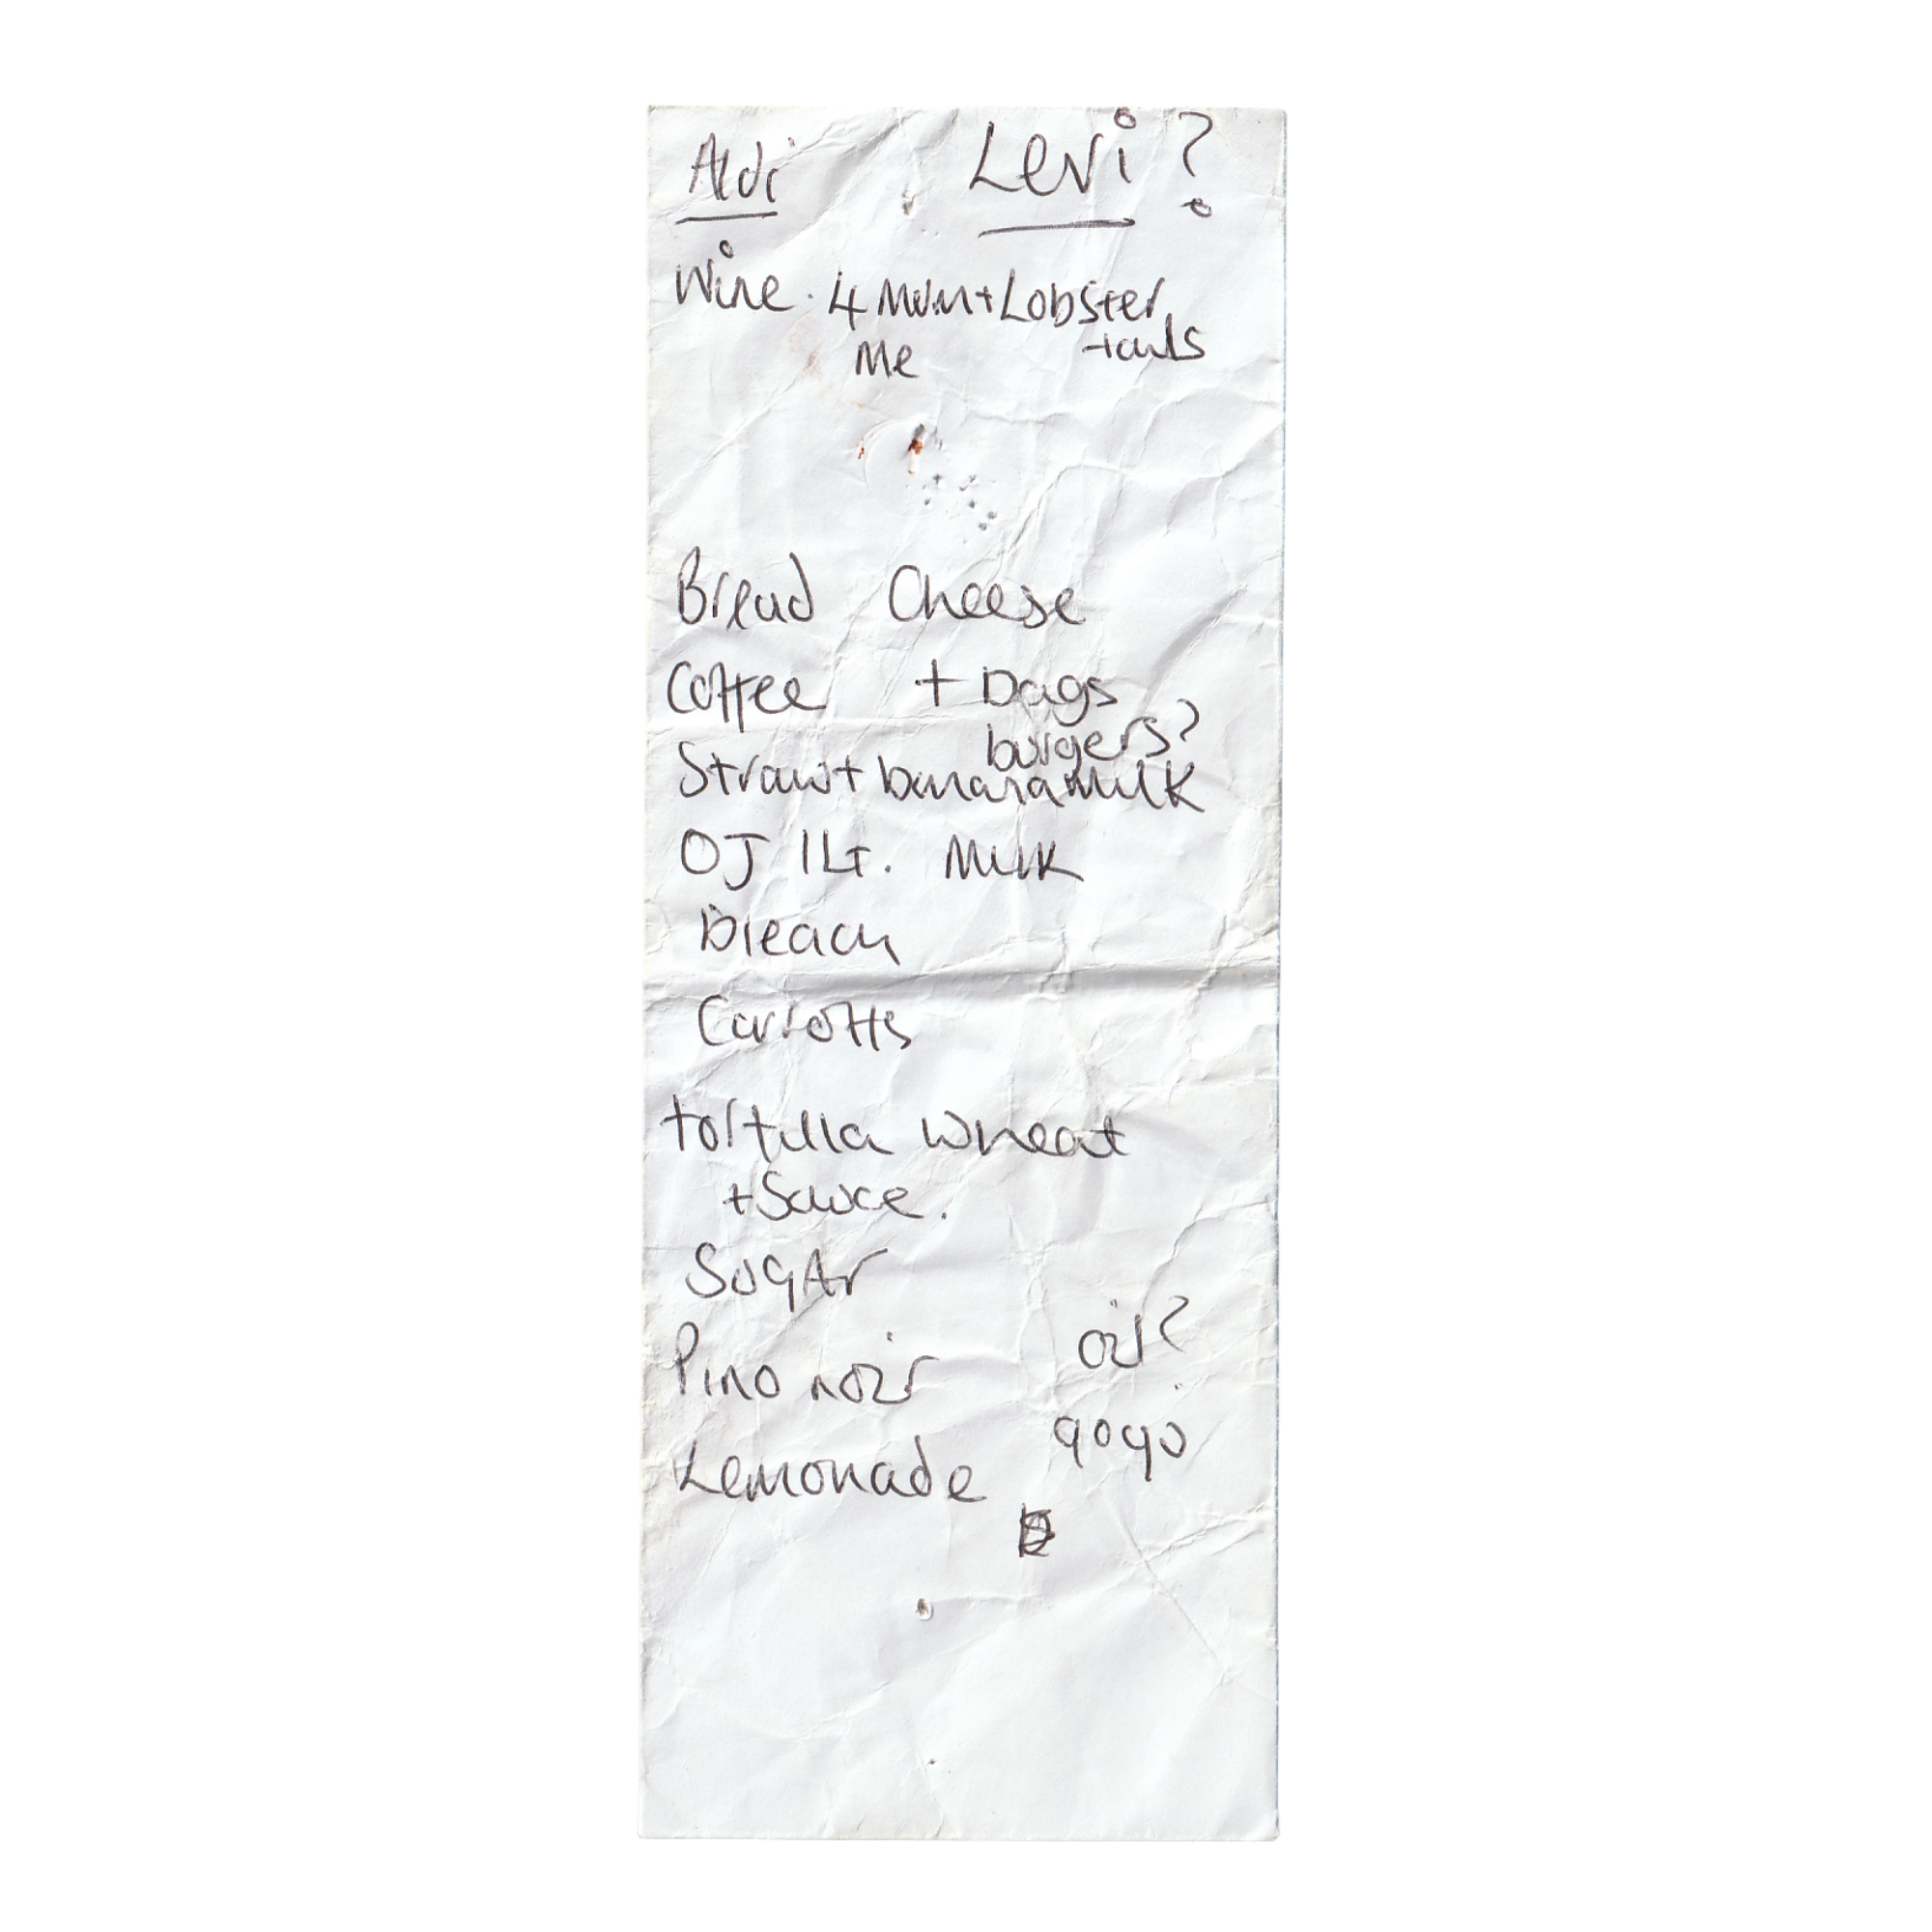 Aldi Levi?
Wine. 4 Mum + Lobster
Me tails
Bread Cheese
Coffee + Bags
burgers?
Straw + banana Milk
OJ 1Lt. Milk
Bleach
Carrotts
tortilla wheat
+ Sauce.
SugAr
oil?
Pino noir
gogo
Lemonade